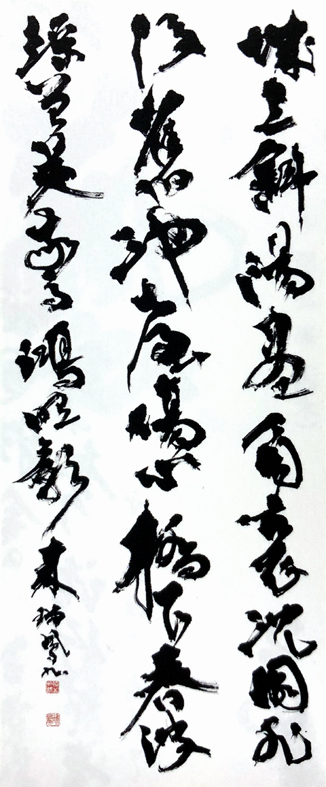 城上斜陽畫角哀沈園非
復舊池臺傷心橋下春波
綠曾見驚鴻照影來 瑞鳳